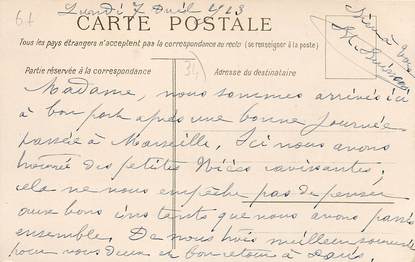 Lundi 7 Avril 1913
67
CARTE POSTALE
Tous les pays étrangers n'acceptent pas la correspondance au recto (se renseigner à la poste)
Partie réservée à la correspondance
Adresse du destinataire
31
Madame, nous sommes arrivés ici
à bon port après une bonne journée
passée à Marseille. Ici nous avons
trouvé des petites Nièces ravissantes;
cela ne nous empêche pas de penser
aux bons instants que nous avons passés
ensemble. De nous trois meilleurs souvenirs
pour vous deux et bon retour à Paris.
Bien à vous